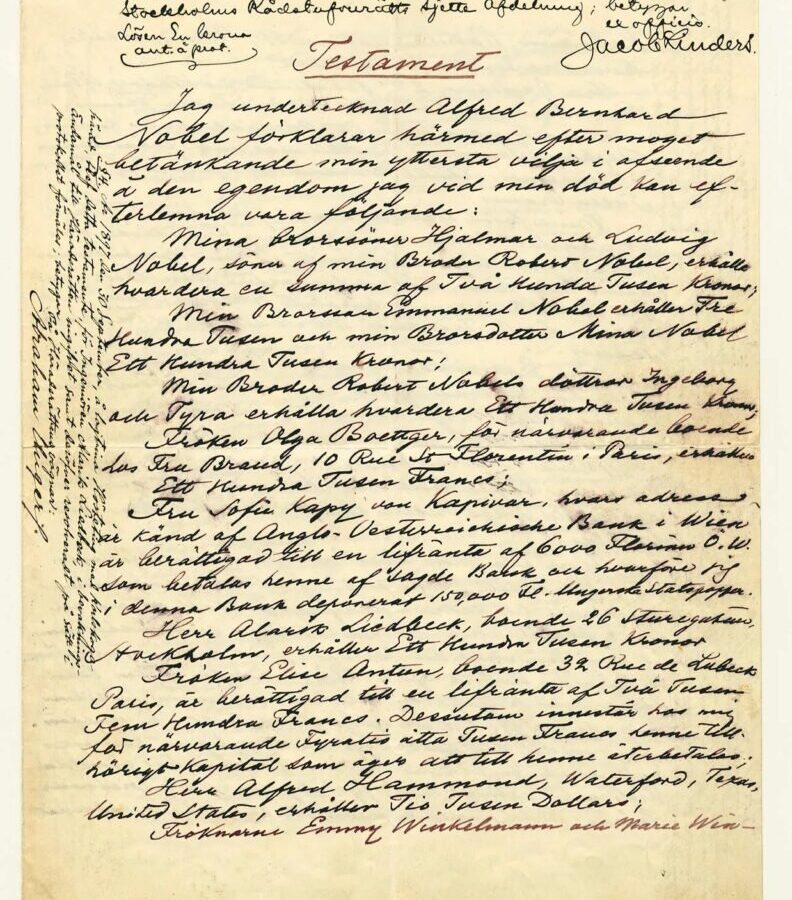 Stockholms Rådstufvurätts sjette Afdelning; betygar
ex officio.
Lösen En krona
ant. å prot.
Jacob Linders.
Testament
Jag undertecknad Alfred Bernhard
Nobel förklarar härmed efter moget
betänkande min yttersta vilja i afseende
å den egendom jag vid min död kan ef-
terlemna vara följande:
Mina brorssöner Hjalmar och Ludvig
Nobel, söner af min Broder Robert Nobel, erhålla
hvardera en summa af Två Hundra Tusen Kronor;
Min Brorsson Emmanuel Nobel erhåller Tre
Hundra Tusen och min Brorsdotter Mina Nobel
Ett Hundra Tusen Kronor;
Min Broder Robert Nobels döttrar Ingeborg
och Tyra erhålla hvardera Ett Hundra Tusen Kronor;
Fröken Olga Boettger, för närvarande boende
hos Fru Brand, 10 Rue St Florentin i Paris, erhåller
Ett Hundra Tusen Francs;
Fru Sofie Kapy von Kapivar, hvars adress
är känd af Anglo-Oesterreichische Bank i Wien
är berättigad till en lifränta af 6000 Florins Ö.W.
som betalas henne af sagde Bank och hvarföre jag
i denna Bank deponerat 150,000 Fl. i Ungerska Statspapper.
Herr Alarik Liedbeck, boende 26 Sturegatan,
Stockholm, erhåller Ett Hundra Tusen Kronor
Fröken Elise Antun, boende 32 Rue de Lubeck
Paris, är berättigad till en lifränta af Två Tusen
Fem Hundra Francs. Dessutom innestår hos mig
för närvarande Fyratio åtta Tusen Francs henne till-
hörigt Kapital som äger att till henne återbetalas;
Herr Alfred Hammond, Waterford, Texas,
United States, erhåller Tio Tusen Dollars;
Fröknarne Emmy Winkelmann och Marie Win-
År 1897 den 30
Abraham Unger.